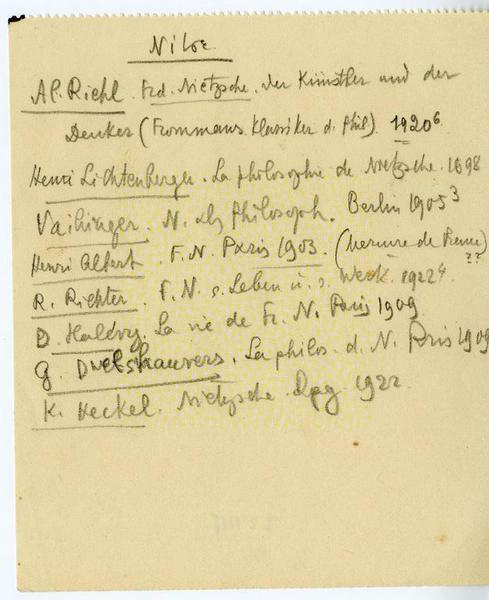 Al. Riehl. Frd. Nietzsche. Der Künstler und der
Denker (Frommans Klassiker d. Phil). 1920⁶
Henri Lichtenberger. La philosophie de Nietzsche. 1898
Vaihinger. N. als Philosoph. Berlin 1905³
Henri Albert. F. N. Paris 1903. (Mercure de France)
??
R. Richter. F. N. s. Leben u. s. Werk. 1922⁴
D. Halévy. La vie de Fr. N. Paris 1909
G. Dwelshauvers. La philos. d. N. Paris 1909
K. Heckel. Nietzsche. Lpzg 1922